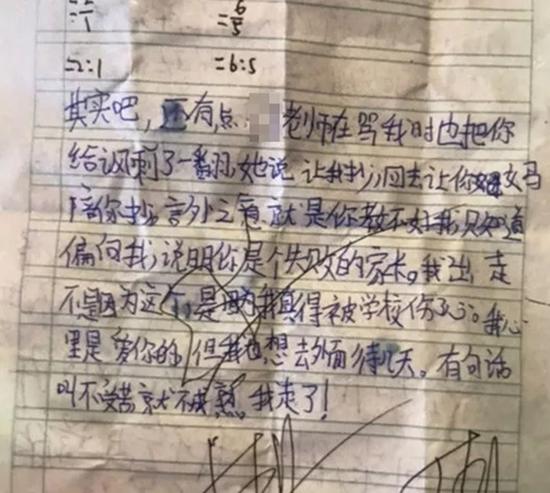 =2/1 =6/5
=2:1 =6:5
其实吧，还有点 老师在骂我时也把你
给讽刺了一翻，她说 让我抄，回去让你妈
陪你抄，言外之意就是你教不好我，只知道
偏向我，说明你是个失败的家长。我出走
不是因为这个，是因为我真得被学校伤了心。我心
里是爱你的，但我也想去外面待几天。有句话
叫不受苦就不成熟，我走了！